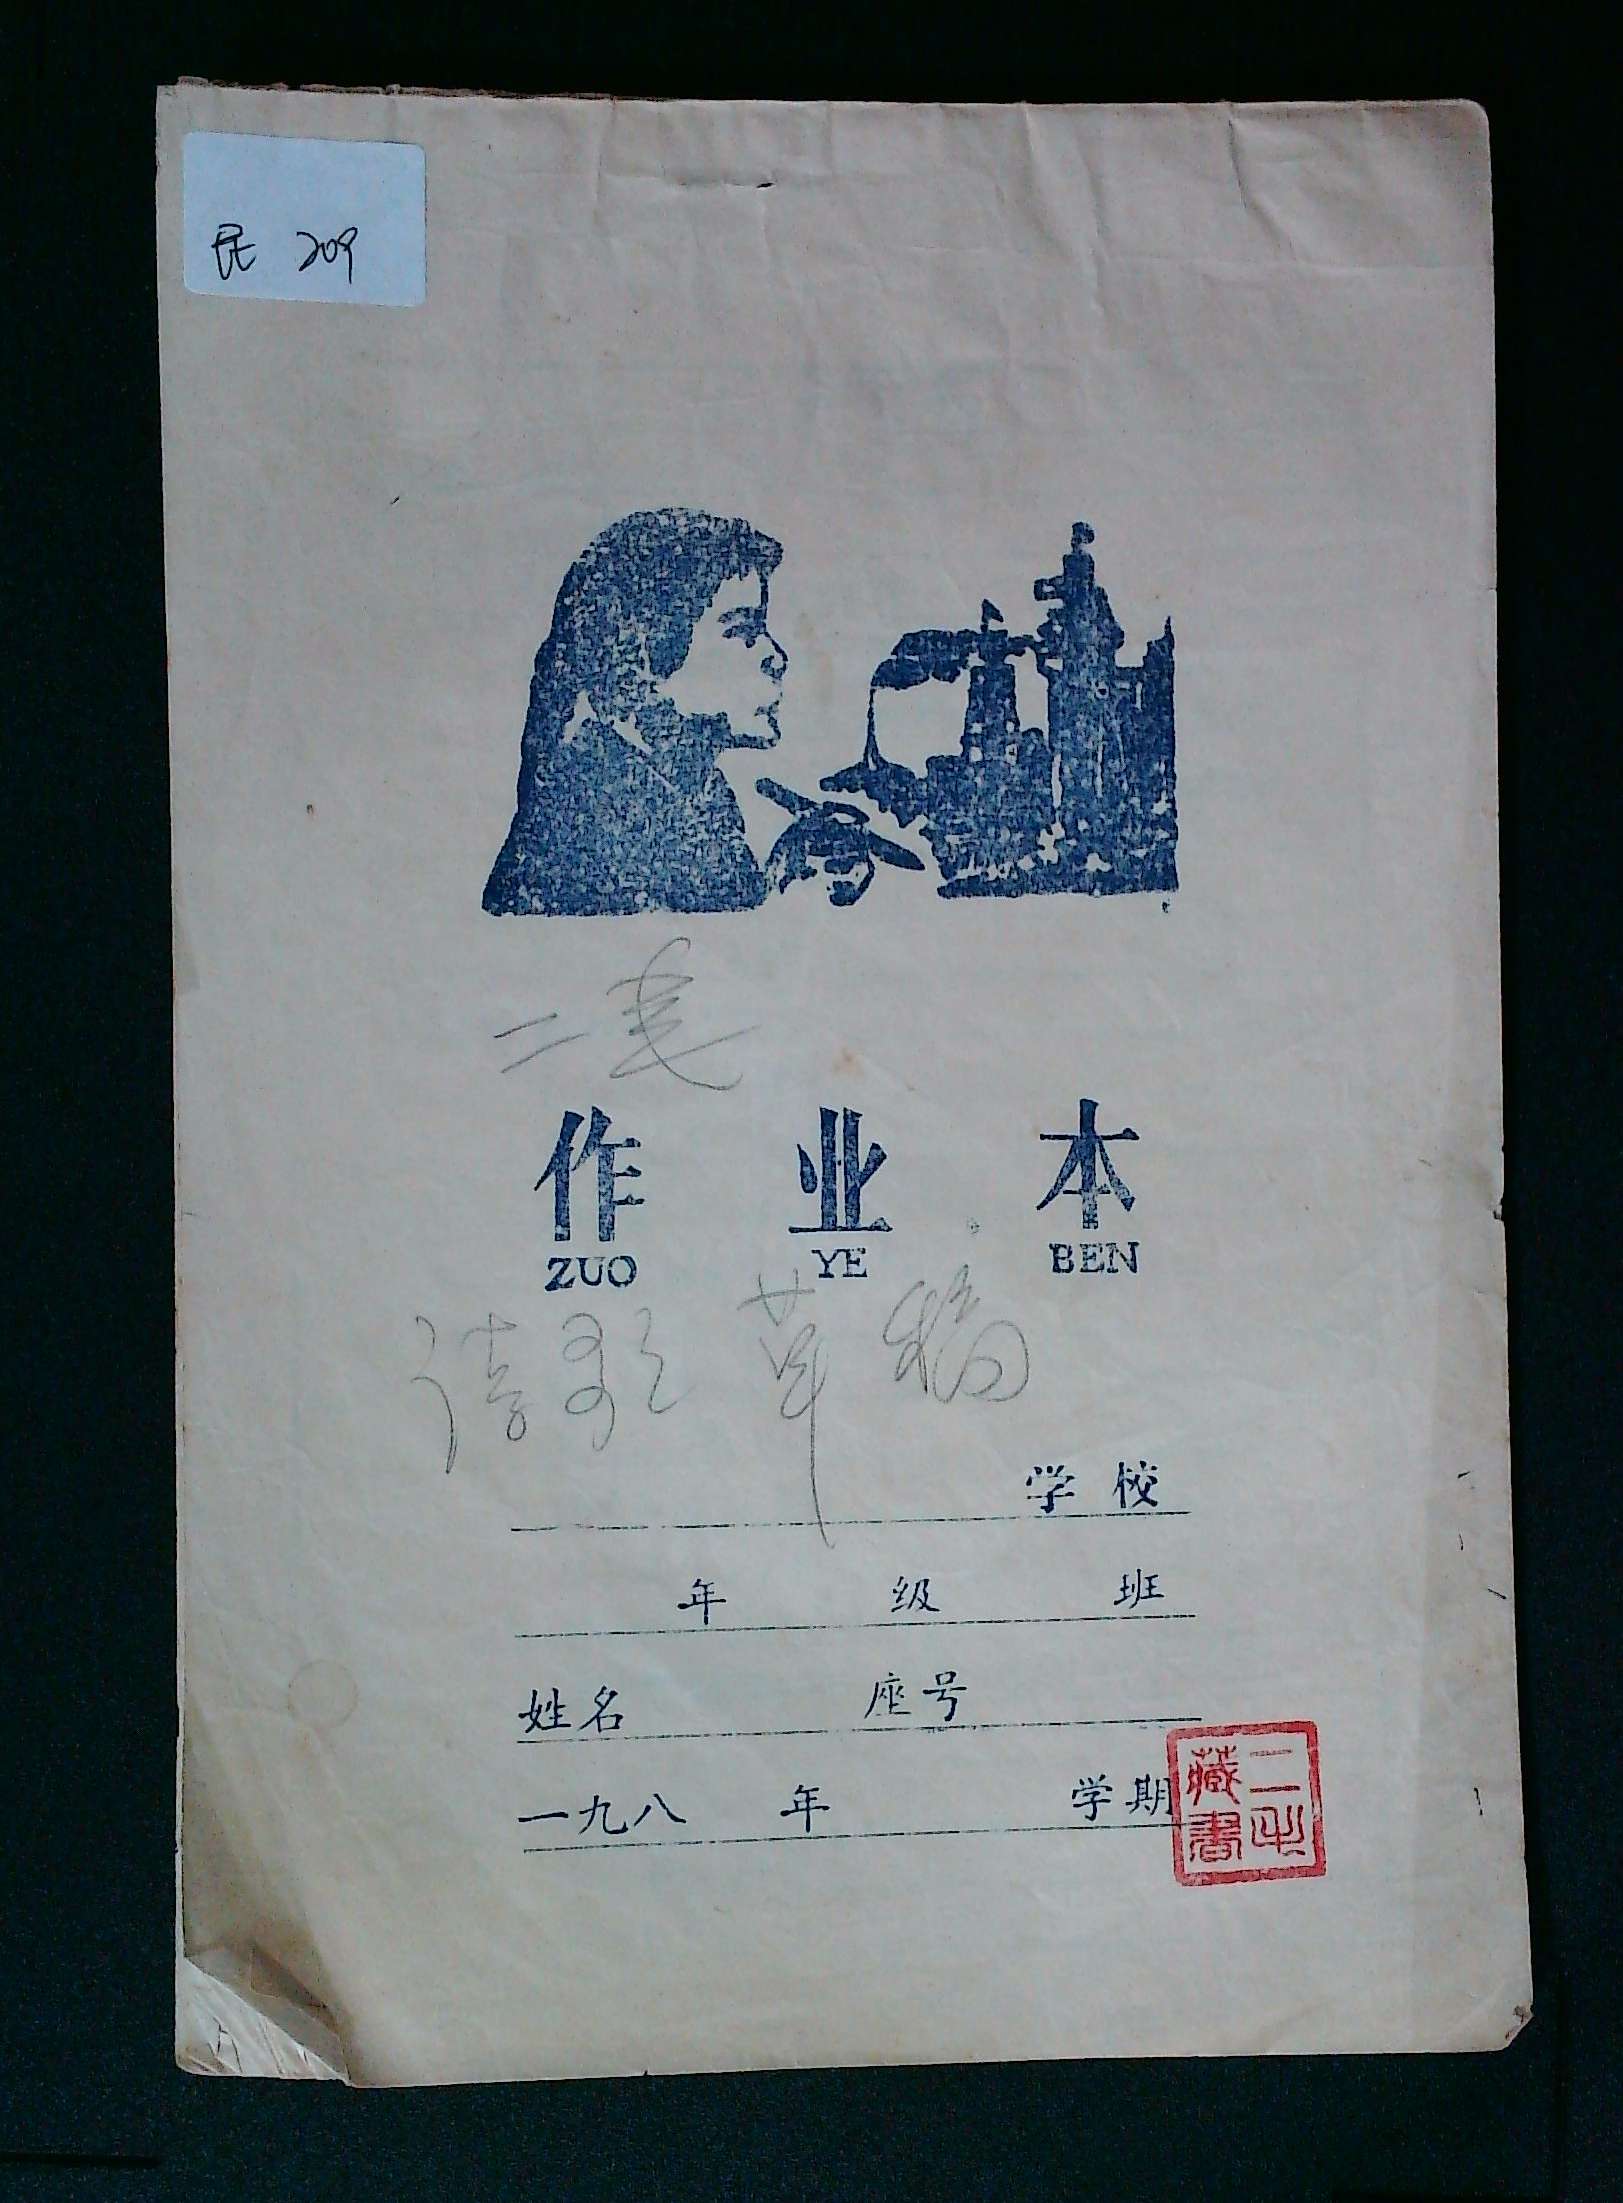 民 209
二毛
作 业 本
ZUO YE BEN
诗歌草稿
学校
年 级 班
姓名 座号
一九八 年 学期
二毛藏書